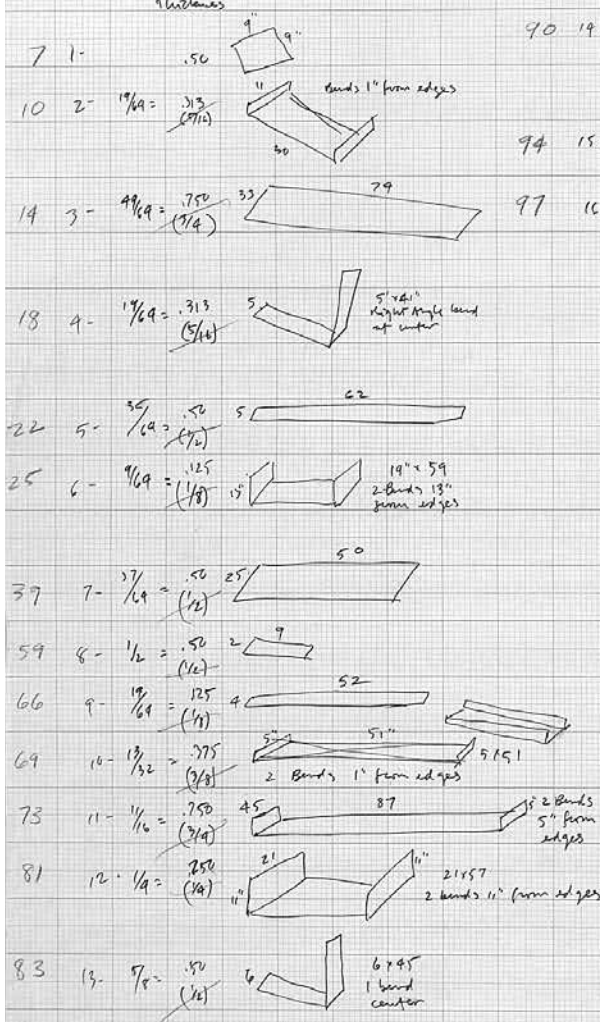 Thickness
7 1- .50 9" 9"
90 14
10 2- 19/64 = .313 (5/16) 11 30 Bends 1" from edges
94 15
14 3- 49/64 = .750 (3/4) 33 79
97 16
18 4- 19/64 = .313 (5/16) 5 5"x41"
Right Angle bend
at center
22 5- 35/64 = .50 (1/2) 5 62
25 6- 9/64 = .125 (1/8) 19" x 59
2 Bends 13"
from edges
39 7- 37/64 = .50 (1/2) 25 50
59 8- 1/2 = .50 (1/2) 2 9
66 9- 19/64 = .125 (1/8) 4 52
69 10- 13/32 = .375 (3/8) 5" 51" 5x51
2 Bends 1" from edges
73 11- 11/16 = .750 (3/4) 45 87 2 Bends
5" from
edges
81 12- 1/4 = .250 (1/4) 21 11" 11" 21x57
2 bends 11" from edges
83 13- 5/8 = .50 (1/2) 6 6x45
1 bend
center